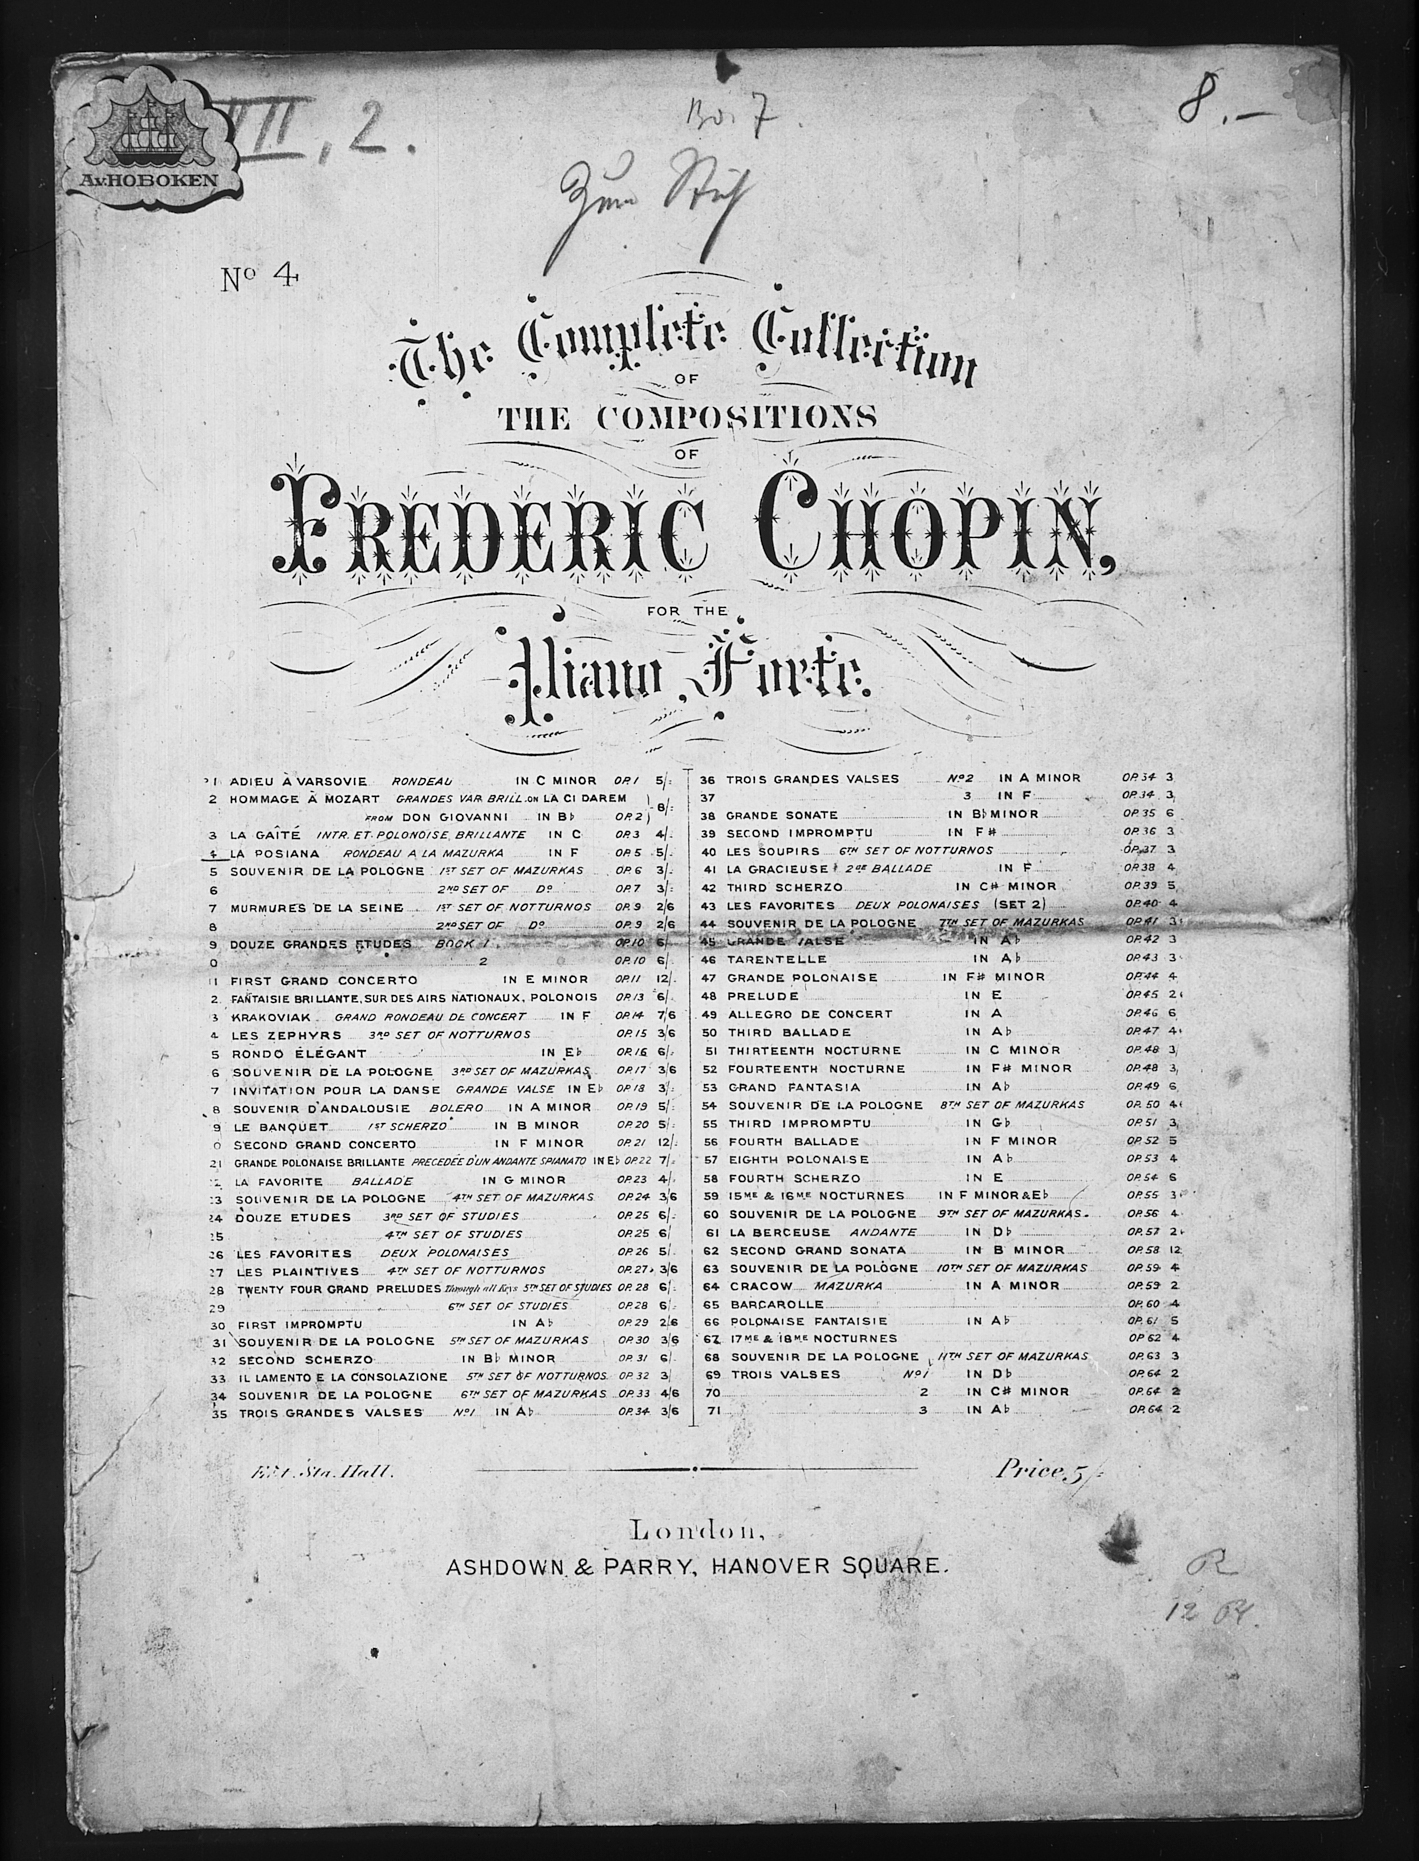 VII, 2.
No. 7
8.–
A.v.HOBOKEN
Zum Stich
No 4
The Complete Collection
OF
THE COMPOSITIONS
OF
FREDERIC CHOPIN,
FOR THE
Piano Forte.
1 ADIEU À VARSOVIE RONDEAU IN C MINOR OP.1 5/-
2 HOMMAGE À MOZART GRANDES VAR. BRILL. ON LA CI DAREM
FROM DON GIOVANNI IN B♭ OP.2 8/-
3 LA GAÎTÉ INTR. ET POLONOISE BRILLANTE IN C OP.3 4/-
4 LA POSIANA RONDEAU A LA MAZURKA IN F OP.5 5/-
5 SOUVENIR DE LA POLOGNE 1ST SET OF MAZURKAS OP.6 3/-
6 2ND SET OF Do OP.7 3/-
7 MURMURES DE LA SEINE 1ST SET OF NOTTURNOS OP.9 2/6
8 2ND SET OF Do OP.9 2/6
9 DOUZE GRANDES ETUDES BOOK 1. OP.10 6/-
0 2 OP.10 6/-
11 FIRST GRAND CONCERTO IN E MINOR OP.11 12/-
2 FANTAISIE BRILLANTE, SUR DES AIRS NATIONAUX, POLONOIS OP.13 6/-
3 KRAKOVIAK GRAND RONDEAU DE CONCERT IN F OP.14 7/6
4 LES ZEPHYRS 3RD SET OF NOTTURNOS OP.15 3/6
5 RONDO ÉLÉGANT IN E♭ OP.16 6/-
6 SOUVENIR DE LA POLOGNE 3RD SET OF MAZURKAS OP.17 3/6
7 INVITATION POUR LA DANSE GRANDE VALSE IN E♭ OP.18 3/-
8 SOUVENIR D'ANDALOUSIE BOLERO IN A MINOR OP.19 5/-
9 LE BANQUET 1ST SCHERZO IN B MINOR OP.20 5/-
0 SECOND GRAND CONCERTO IN F MINOR OP.21 12/-
21 GRANDE POLONAISE BRILLANTE PRECEDÉE D'UN ANDANTE SPIANATO IN E♭ OP.22 7/-
2 LA FAVORITE BALLADE IN G MINOR OP.23 4/-
23 SOUVENIR DE LA POLOGNE 4TH SET OF MAZURKAS OP.24 3/6
24 DOUZE ETUDES 3RD SET OF STUDIES OP.25 6/-
25 4TH SET OF STUDIES OP.25 6/
26 LES FAVORITES DEUX POLONAISES OP.26 5/-
27 LES PLAINTIVES 4TH SET OF NOTTURNOS OP.27 3/6
28 TWENTY FOUR GRAND PRELUDES Through all Keys 5TH SET OF STUDIES OP.28 6/-
29 6TH SET OF STUDIES OP.28 6/-
30 FIRST IMPROMPTU IN A♭ OP.29 2/6
31 SOUVENIR DE LA POLOGNE 5TH SET OF MAZURKAS OP.30 3/6
32 SECOND SCHERZO IN B♭ MINOR OP.31 6/-
33 IL LAMENTO E LA CONSOLAZIONE 5TH SET OF NOTTURNOS OP.32 3/
34 SOUVENIR DE LA POLOGNE 6TH SET OF MAZURKAS OP.33 4/6
35 TROIS GRANDES VALSES No1 IN A♭ OP.34 3/6
36 TROIS GRANDES VALSES No2 IN A MINOR OP.34 3
37 3 IN F OP.34 3
38 GRANDE SONATE IN B♭ MINOR OP.35 6
39 SECOND IMPROMPTU IN F# OP.36 3
40 LES SOUPIRS 6TH SET OF NOTTURNOS OP.37 3
41 LA GRACIEUSE 2DE BALLADE IN F OP.38 4
42 THIRD SCHERZO IN C# MINOR OP.39 5
43 LES FAVORITES DEUX POLONAISES (SET 2) OP.40 4
44 SOUVENIR DE LA POLOGNE 7TH SET OF MAZURKAS OP.41 3
45 GRANDE VALSE IN A♭ OP.42 3
46 TARENTELLE IN A♭ OP.43 3
47 GRANDE POLONAISE IN F# MINOR OP.44 4
48 PRELUDE IN E OP.45 2
49 ALLEGRO DE CONCERT IN A OP.46 6
50 THIRD BALLADE IN A♭ OP.47 4
51 THIRTEENTH NOCTURNE IN C MINOR OP.48 3
52 FOURTEENTH NOCTURNE IN F# MINOR OP.48 3
53 GRAND FANTASIA IN A♭ OP.49 6
54 SOUVENIR DE LA POLOGNE 8TH SET OF MAZURKAS OP.50 4
55 THIRD IMPROMPTU IN G♭ OP.51 3
56 FOURTH BALLADE IN F MINOR OP.52 5
57 EIGHTH POLONAISE IN A♭ OP.53 4
58 FOURTH SCHERZO IN E OP.54 6
59 15ME & 16ME NOCTURNES IN F MINOR & E♭ OP.55 3
60 SOUVENIR DE LA POLOGNE 9TH SET OF MAZURKAS OP.56 4
61 LA BERCEUSE ANDANTE IN D♭ OP.57 2
62 SECOND GRAND SONATA IN B MINOR OP.58 12
63 SOUVENIR DE LA POLOGNE 10TH SET OF MAZURKAS OP.59 4
64 CRACOW MAZURKA IN A MINOR OP.59 2
65 BARCAROLLE OP.60 4
66 POLONAISE FANTAISIE IN A♭ OP.61 5
67 17ME & 18ME NOCTURNES OP.62 4
68 SOUVENIR DE LA POLOGNE 11TH SET OF MAZURKAS OP.63 3
69 TROIS VALSES No1 IN D♭ OP.64 2
70 2 IN C# MINOR OP.64 2
71 3 IN A♭ OP.64 2
Ent. Sta. Hall.
Price 5/-
London,
ASHDOWN & PARRY, HANOVER SQUARE.
R
12